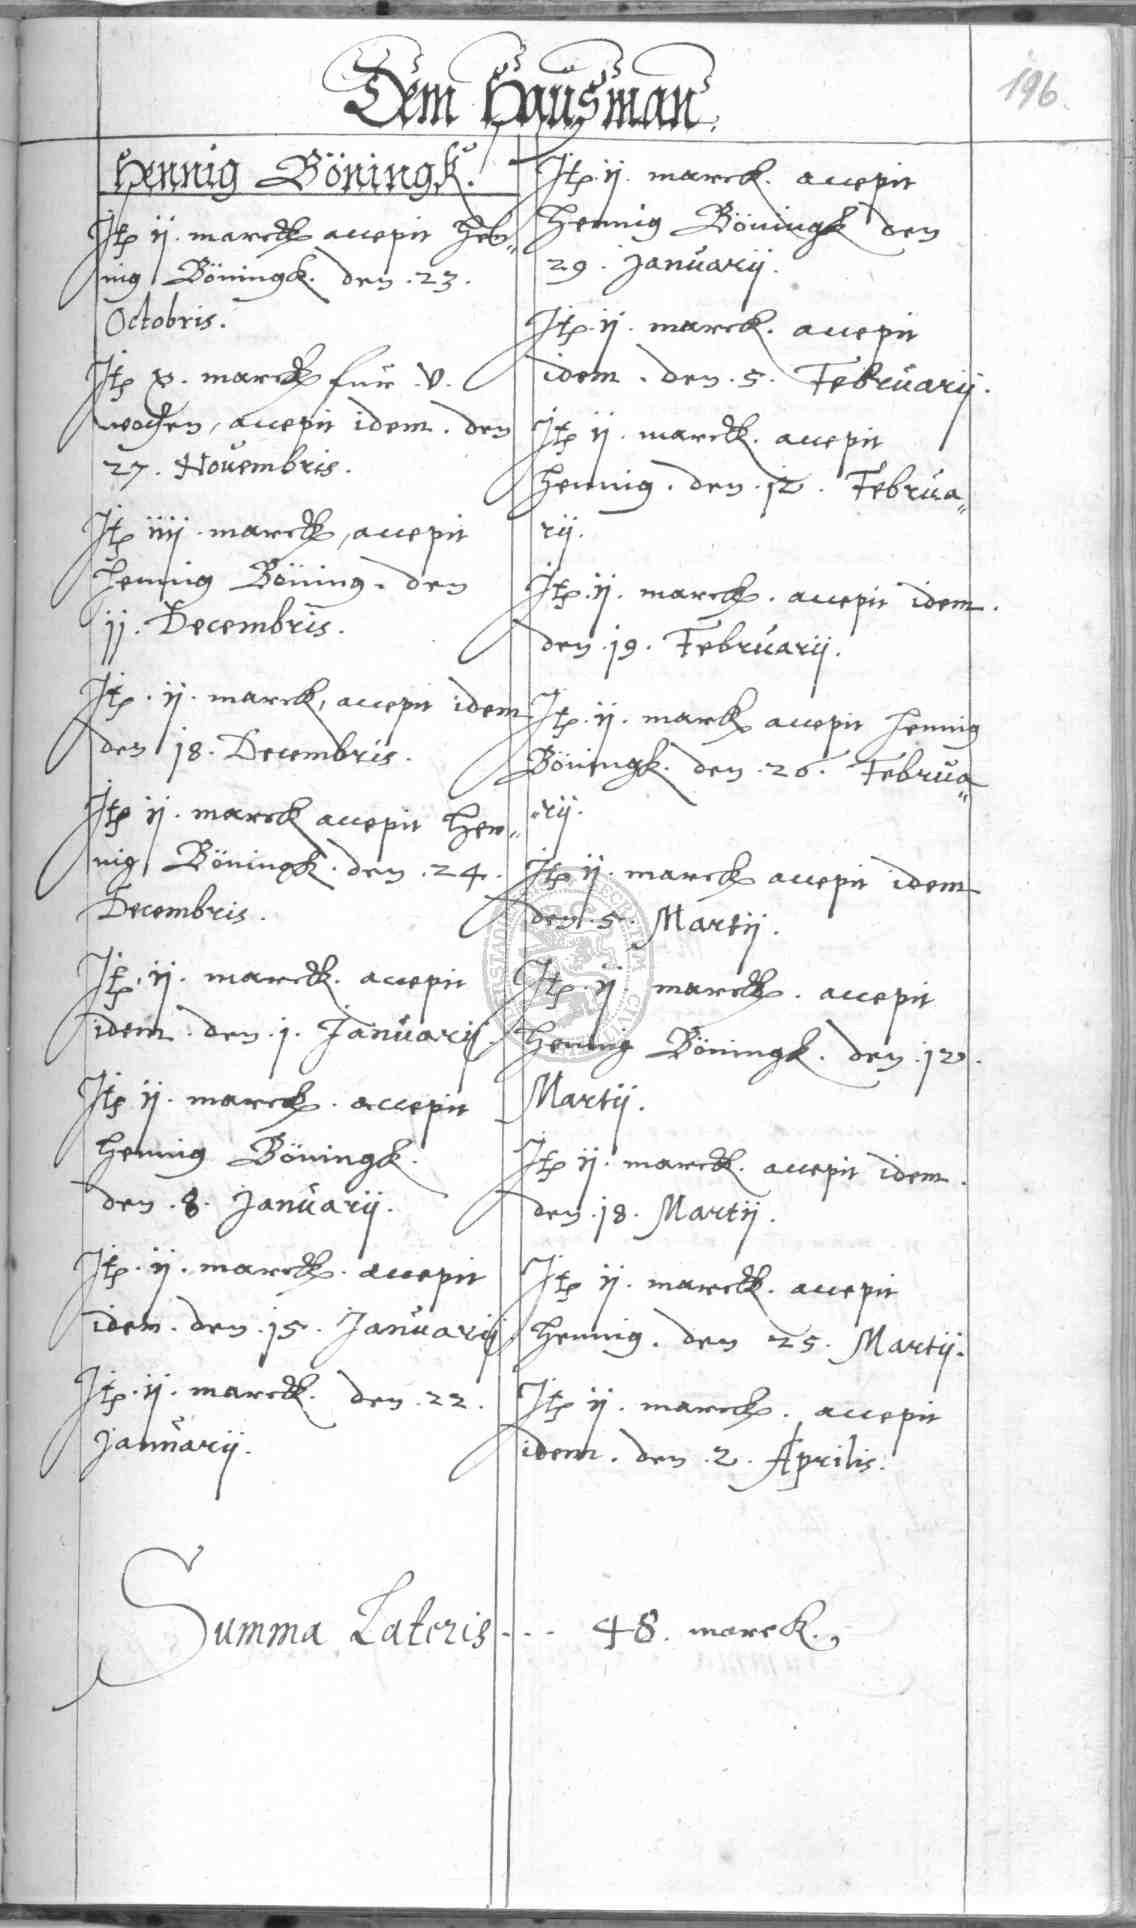 196.
Dem Hausman.
Hennig Böningk.
Itp ij. marck accepit Hen„
nig Böningk. den .23.
Octobris.
Itp x. marck fur .V.
wochen, accepit idem. den
27. Novembris.
Itp iiij. marck, accepit
Hennig Böning. den
11. Decembris.
Itp. ij. marck, accepit idem
den 18. Decembris.
Itp ij. marck accepit Hen„
nig Böningk. den .24.
Decembris.
Itp. ij. marck. accepit
idem. den .1. Januarij.
Itp ij. marck. accepit
Hennig Böningk.
den .8. Januarij.
Itp. ij. marck. accepit
idem. den .15. Januarij.
Itp. ij. marck. den .22.
Januarij.
Itp. ij. marck. accepit
Hennig Böningk den
29. Januarij.
Itp. ij. marck. accepit
idem. den .5. Februarij.
Itp ij. marck. accepit
Hennig. den .12. Februa„
rij.
Itp. ij. marck. accepit idem.
den .19. Februarij.
Itp. ij. marck accepit Hennig
Böningk. den .26. Februa„
„rij.
Itp ij. marck accepit idem
den .5. Martij.
Itp. ij. marck. accepit
Hennig Böningk. den .12.
Martij.
Itp ij. marck. accepit idem.
den .18. Martij.
Itp ij. marck. accepit
Hennig. den 25. Martij.
Itp ij. marck. accepit
idem. den .2. Aprilis.
Summa Lateris - - - 48. marck.